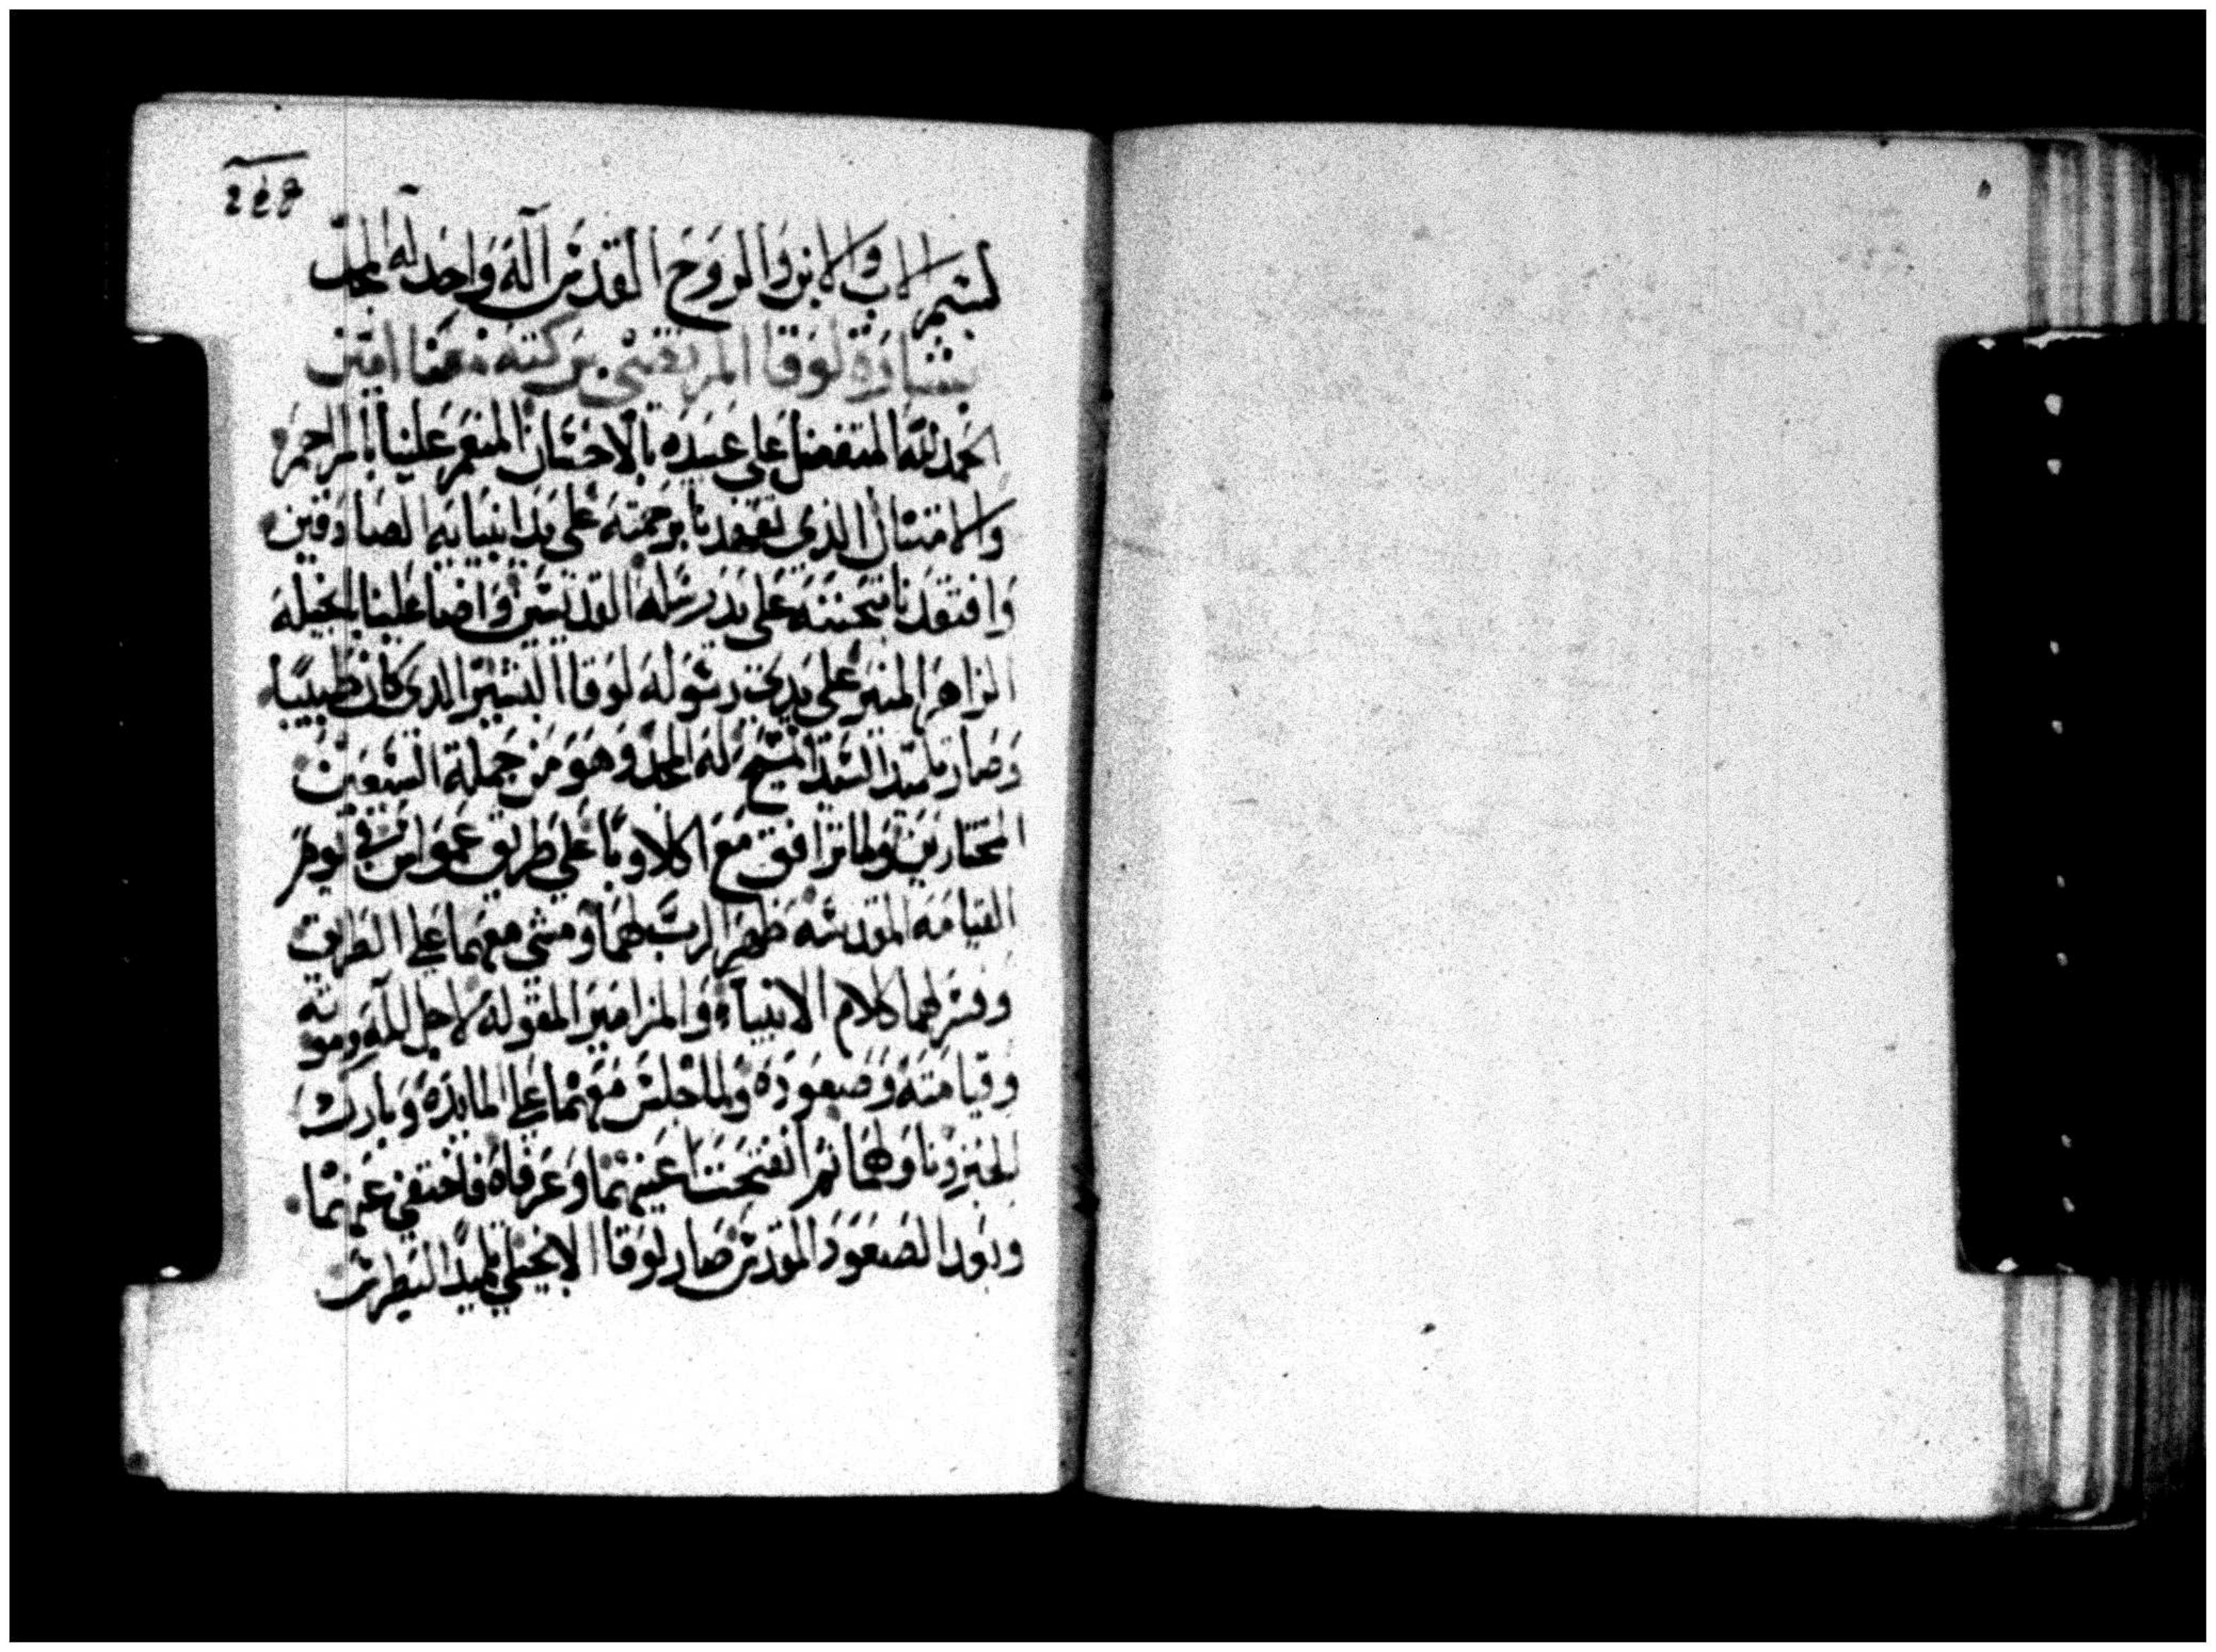 بسم الاب والابن والروح القدس اله واحد له المجد
بشارة لوقا المرتقشي بركته معنا امين
الحمد لله المتفضل على عبيده بالاحسان المنعم علينا بالمراحم
والامتنان الذي تعهدنا برحمته على يد انبيايه الصادقين
وافتقدنا بتحننه على يد رسله القديسين واضا علينا انجيله
الزاهر المنير على يدي رسوله لوقا البشير الذي كان طبيبًا
وصار تلميد السيد المسيح له المجد وهو من جملة السبعين
المختارين ولما ترافق مع اكلاوبا على طريق عمواس في يوم
القيامه المقدسه ظهر الرب لهما ومشي معهما على الطريق
وفسر لهما كلام الانبياء والمزامير المقوله لاجل المه وموته
وقيامته وصعوده ولما جلس معهما على المايدة وبارك
الخبز وناولهما ثم انفتحتا عينهما وعرفاه فاختفي عنهما
وبعد الصعود المقدس صار لوقا الانجيلي تلميدًا لبطرس